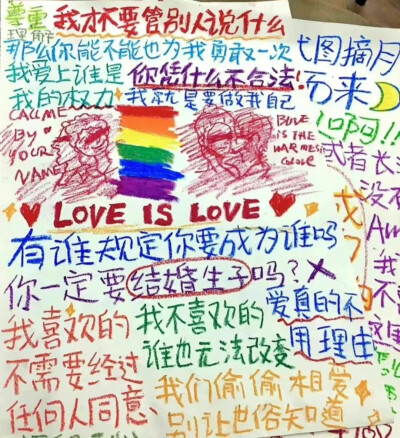 尊重
理解
我才不要管别人说什么
那么你能不能也为我勇敢一次
我爱上谁是
我的权力
你凭什么不合法!
我就是要做我自己
CALL ME
BY
YOUR
NAME
BLUE
IS THE
WARMEST
COLOR
LOVE IS LOVE
有谁规定你要成为谁吗
你一定要结婚生子吗?
我喜欢的
不需要经过
任何人同意
我不喜欢的
谁也无法改变
爱真的不
用理由
我们偷偷相爱
别让世俗知道
图摘月
而来
啊!!
或者长
没不
Am
我
不